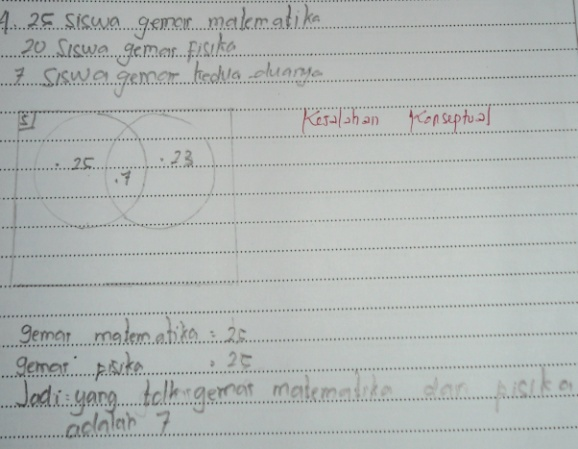 4. 25 siswa gemar matematika
20 siswa gemar fisika
7 siswa gemar kedua-duanya
S
Kesalahan Konseptual
. 25
. 7
. 23
gemar matematika = 25
gemar fisika = 25
Jadi: yang gemar matematika dan pisika
adalah 7